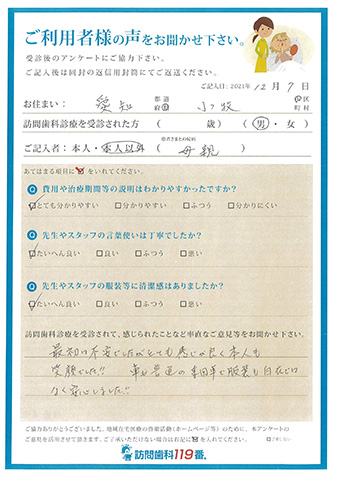 ご利用者様の声をお聞かせ下さい。
受診後のアンケートにご協力下さい。
ご記入後は同封の返信用封筒にてご返送ください。
ご記入日：2021年 12月 7日
お住まい： 愛知 都道府県 小牧 市区町村
訪問歯科診療を受診された方 （ 歳）（男・女）
ご記入者：本人・本人以外（ 母親 ）
あてはまる項目に を いれてください。
Q 費用や治療期間等の説明はわかりやすかったですか？
とても分かりやすい □分かりやすい □ふつう □分かりにくい
Q 先生やスタッフの言葉使いは丁寧でしたか？
たいへん良い □良い □ふつう □悪い
Q 先生やスタッフの服装等に清潔感はありましたか？
たいへん良い □良い □ふつう □悪い
訪問歯科診療を受診されて、感じられたことなど率直なご意見等をお聞かせ下さい。
最初は不安でしたがとても感じが良く本人も
笑顔でした!! 車も普通の車 で服装も白衣では
なく安心しました!!
ご協力ありがとうございました。地域在宅医療の啓発活動（ホームページ等）のために、本アンケートの
ご意見を活用させて頂きます。ご了承いただけない場合は右記に を入れてください。 □了承しない
訪問歯科119番。